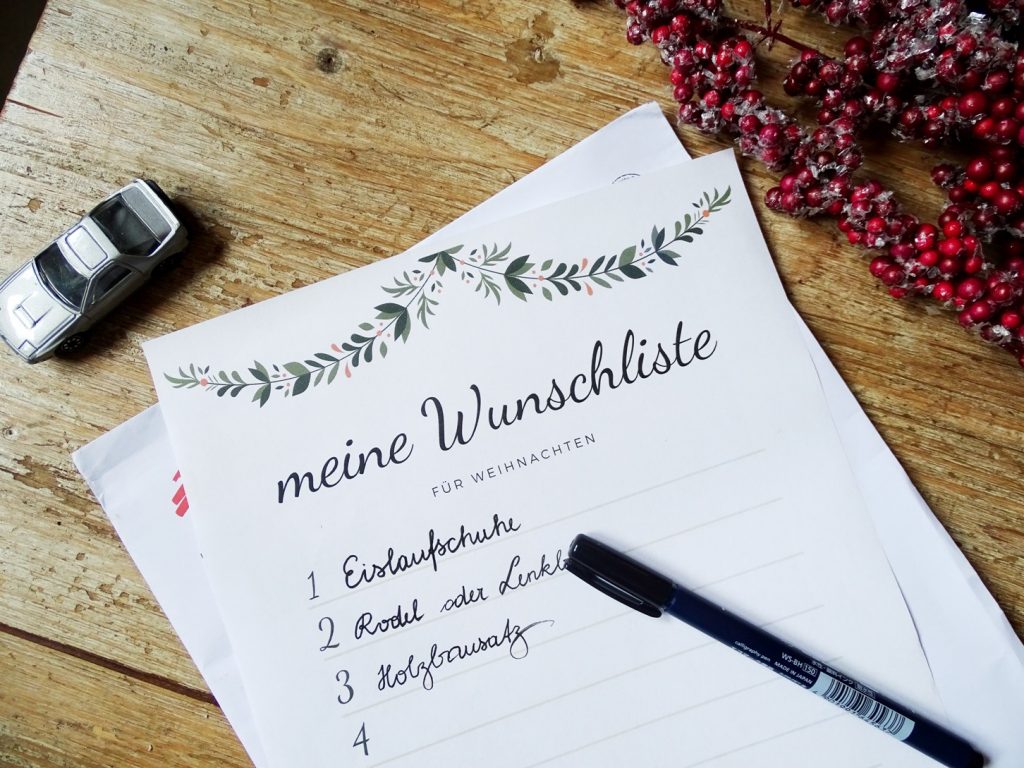 meine Wunschliste
FÜR WEIHNACHTEN
1 Eislaufschuhe
2 Rodel oder
3 Holzbausatz
4
calligraphy pen
WS-BH 150
MADE IN JAPAN